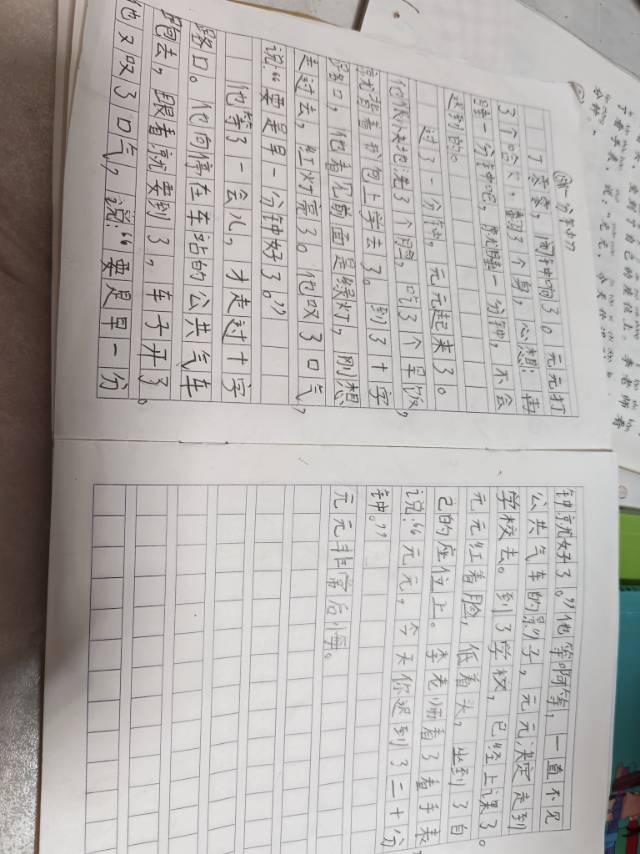 ⑯一分钟
丁零零，闹钟响了。元元打
了个哈欠，翻了个身，心想：再
睡一分钟吧，就睡一分钟，不会
迟到的。
过了一分钟，元元起来了。
他很快地洗了个脸，吃了个早饭，
就背着书包上学去了。到了十字
路口，他看见前面是绿灯，刚想
走过去，红灯亮了。他叹了口气，
说：“要是早一分钟好了。”
他等了一会儿，才走过十字
路口。他向停在车站的公共汽车
跑去，眼看就要到了，车子开了。
他又叹了口气，说：“要是早一分
钟就好了。”他等啊等，一直不见
公共汽车的影子，元元决定走到
学校去。到了学校，已经上课了。
元元红着脸，低着头，坐到了自
己的座位上。李老师看了看手表，
说：“元元，今天你迟到了二十分
钟。”
元元非常后悔。